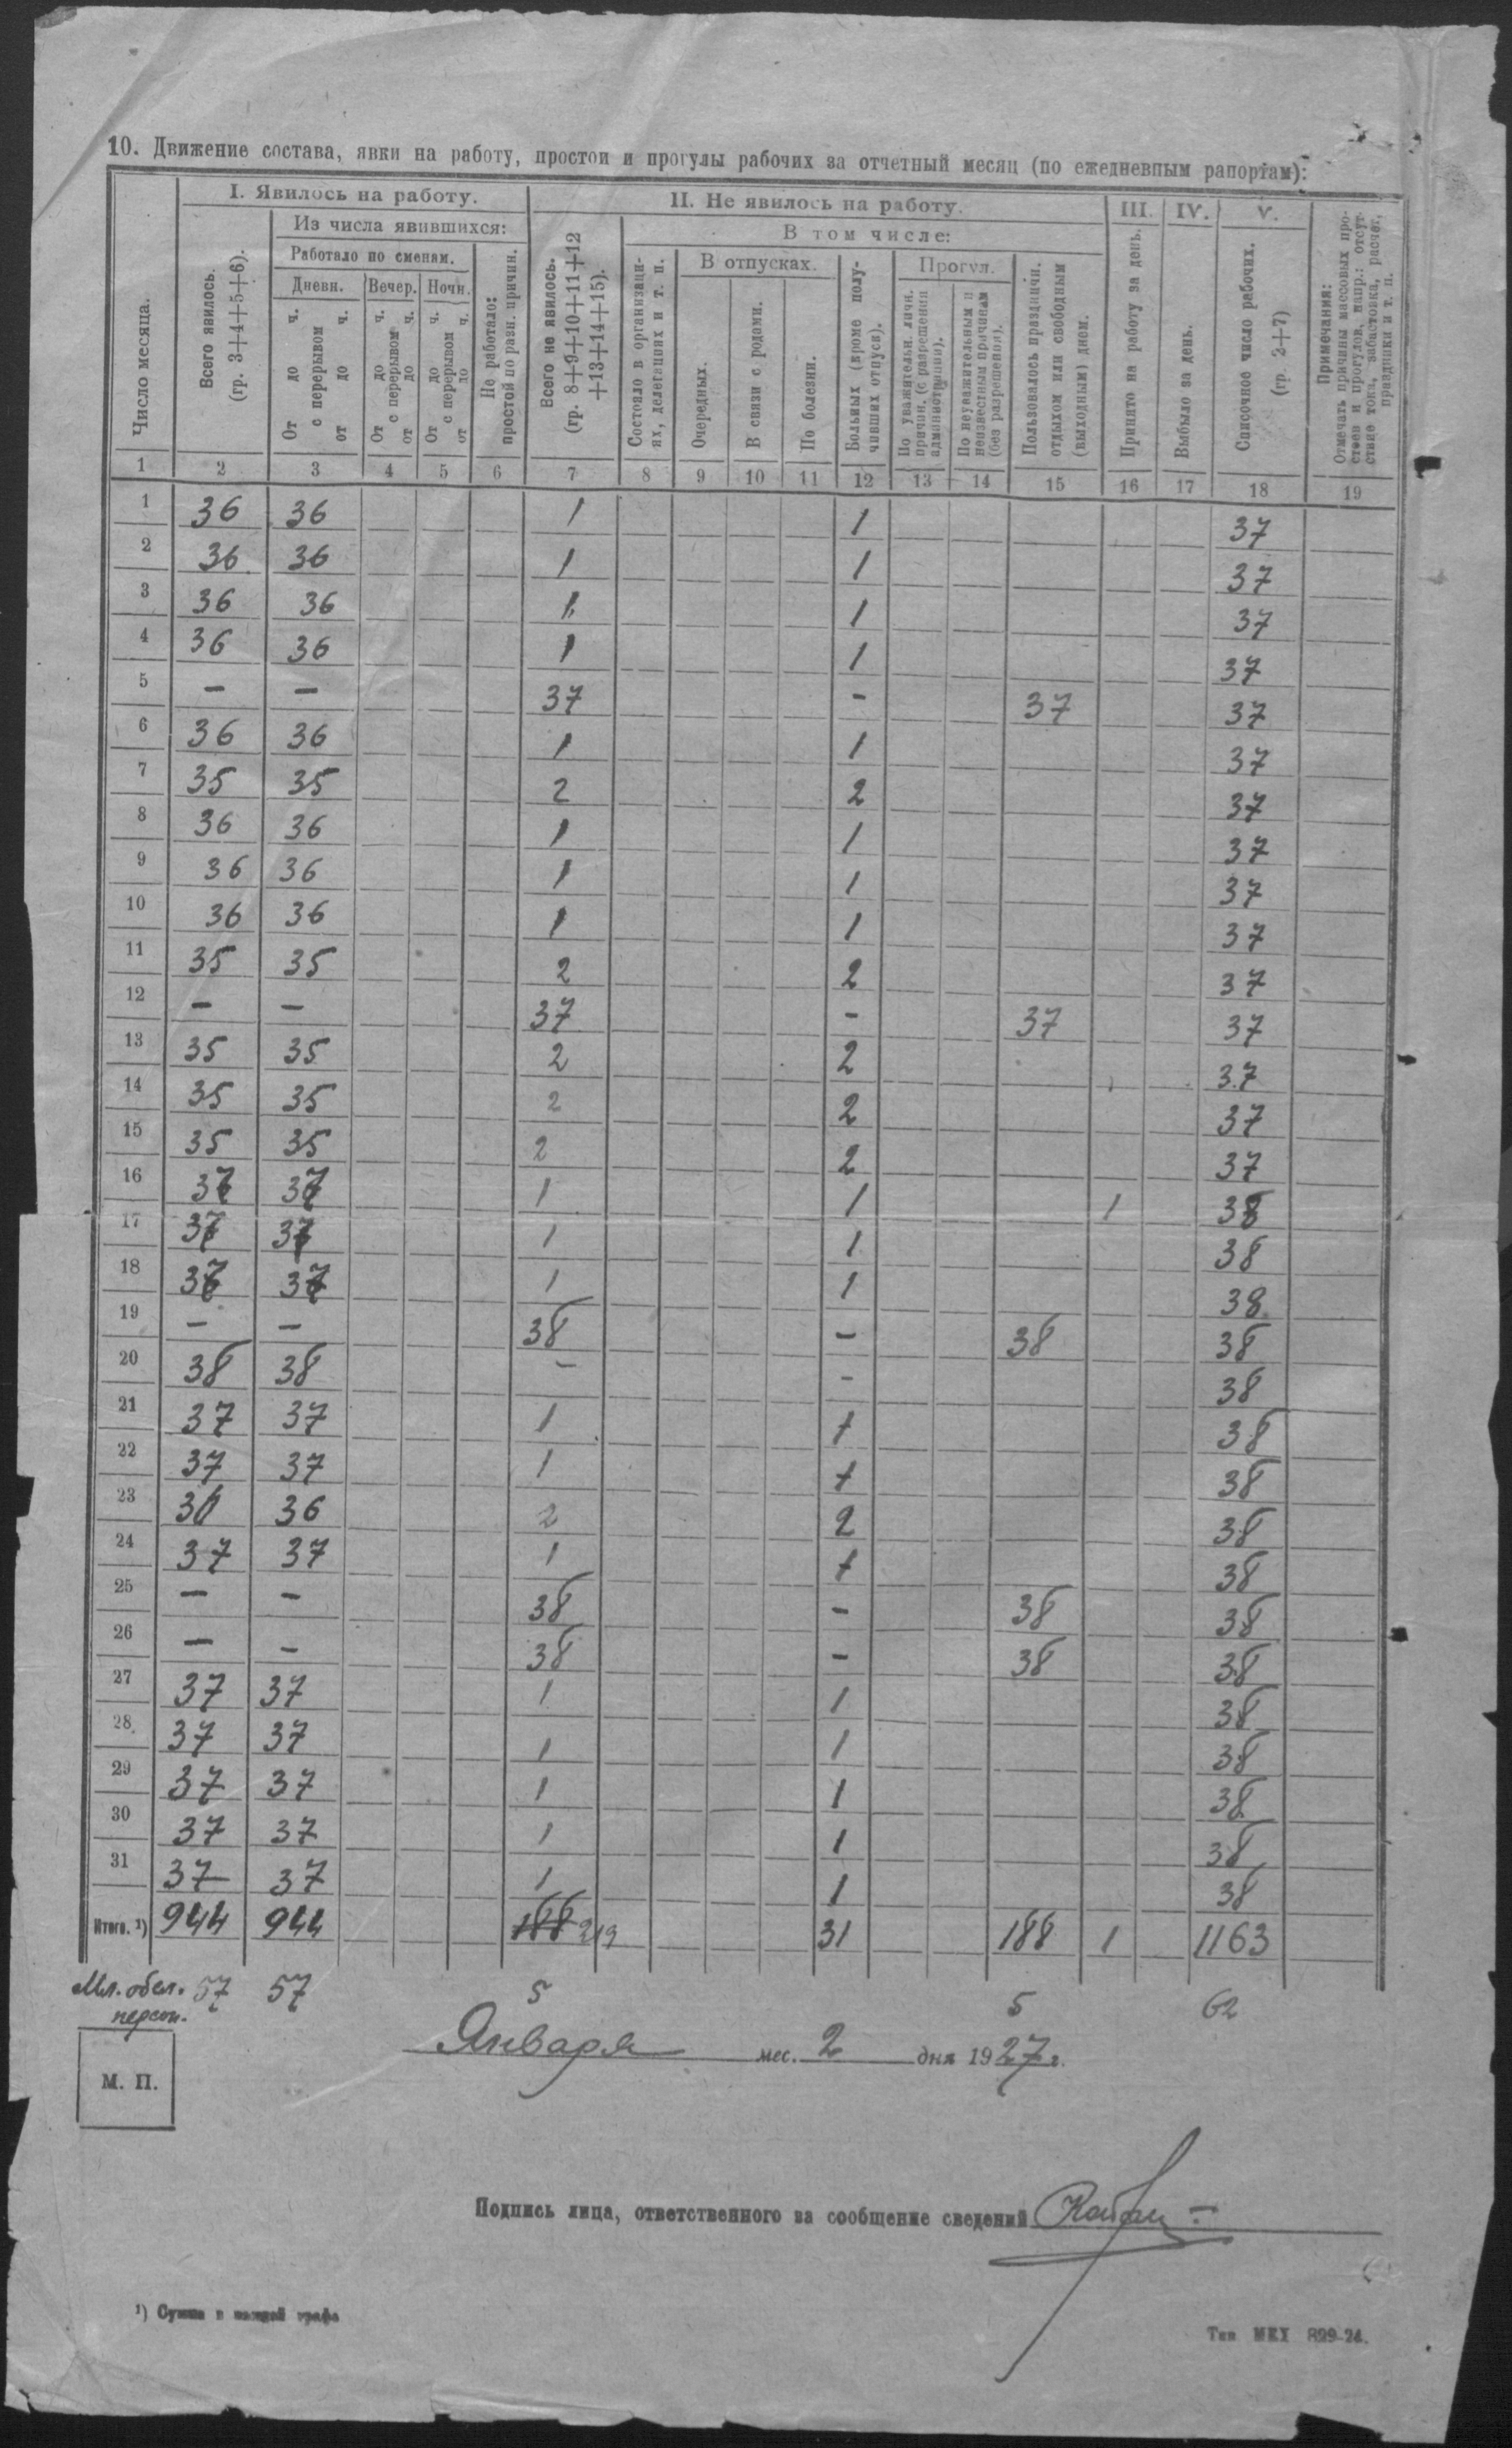 10. Движение состава, явки на работу, простои и прогулы рабочих за отчетный месяц (по ежедневным рапортам):
Число месяца.
I. Явилось на работу.
Всего явилось.
(гр. 3+4+5+6).
Из числа явившихся:
Работало по сменам.
Дневн.
От до ч.
с перерывом
от до ч.
Вечер.
От до ч.
с перерывом
от до ч.
Ночн.
От до ч.
с перерывом
от до ч.
Не работало:
простой по разн. причин.
II. Не явилось на работу.
Всего не явилось.
(гр. 8+9+10+11+12
+13+14+15).
В том числе:
Состояло в организаци-
ях, делегациях и т. п.
В отпусках.
Очередных.
В связи с родами.
По болезни.
Больных (кроме полу-
чивших отпуск).
Прогул.
По уважительн. личн.
причин. (с разрешения
администрации).
По неуважительным и
неизвестным причинам
(без разрешения).
Пользовалось праздничн.
отдыхом или свободным
(выходным) днем.
III.
Принято на работу за день.
IV.
Выбыло за день.
V.
Списочное число рабочих.
(гр. 2+7)
Примечания:
Отмечать причины массовых про-
стоев и прогулов, напр.: отсут-
ствие тока, забастовка, расчет,
праздники и т. п.
1 2 3 4 5 6 7 8 9 10 11 12 13 14 15 16 17 18 19
1 36 36 1 1 37
2 36 36 1 1 37
3 36 36 1 1 37
4 36 36 1 1 37
5 — — 37 - 37 37
6 36 36 1 1 37
7 35 35 2 2 37
8 36 36 1 1 37
9 36 36 1 1 37
10 36 36 1 1 37
11 35 35 2 2 37
12 — — 37 - 37 37
13 35 35 2 2 37
14 35 35 2 2 37
15 35 35 2 2 37
16 37 37 1 1 1 38
17 37 37 1 1 38
18 37 37 1 1 38
19 — — 38 — 38 38
20 38 38 - - 38
21 37 37 1 1 38
22 37 37 1 1 38
23 36 36 2 2 38
24 37 37 1 1 38
25 — — 38 — 38 38
26 — — 38 — 38 38
27 37 37 1 1 38
28 37 37 1 1 38
29 37 37 1 1 38
30 37 37 1 1 38
31 37 37 1 1 38
Итого. ¹) 944 944 188 219 31 188 1 1163
Мл. обсл. 57 57 5 5 62
персон.
Января мес. 2 дня 1927 г.
М. П.
Подпись лица, ответственного за сообщение сведений
¹) Сумма в каждой графе
Тип МКХ 899-24.